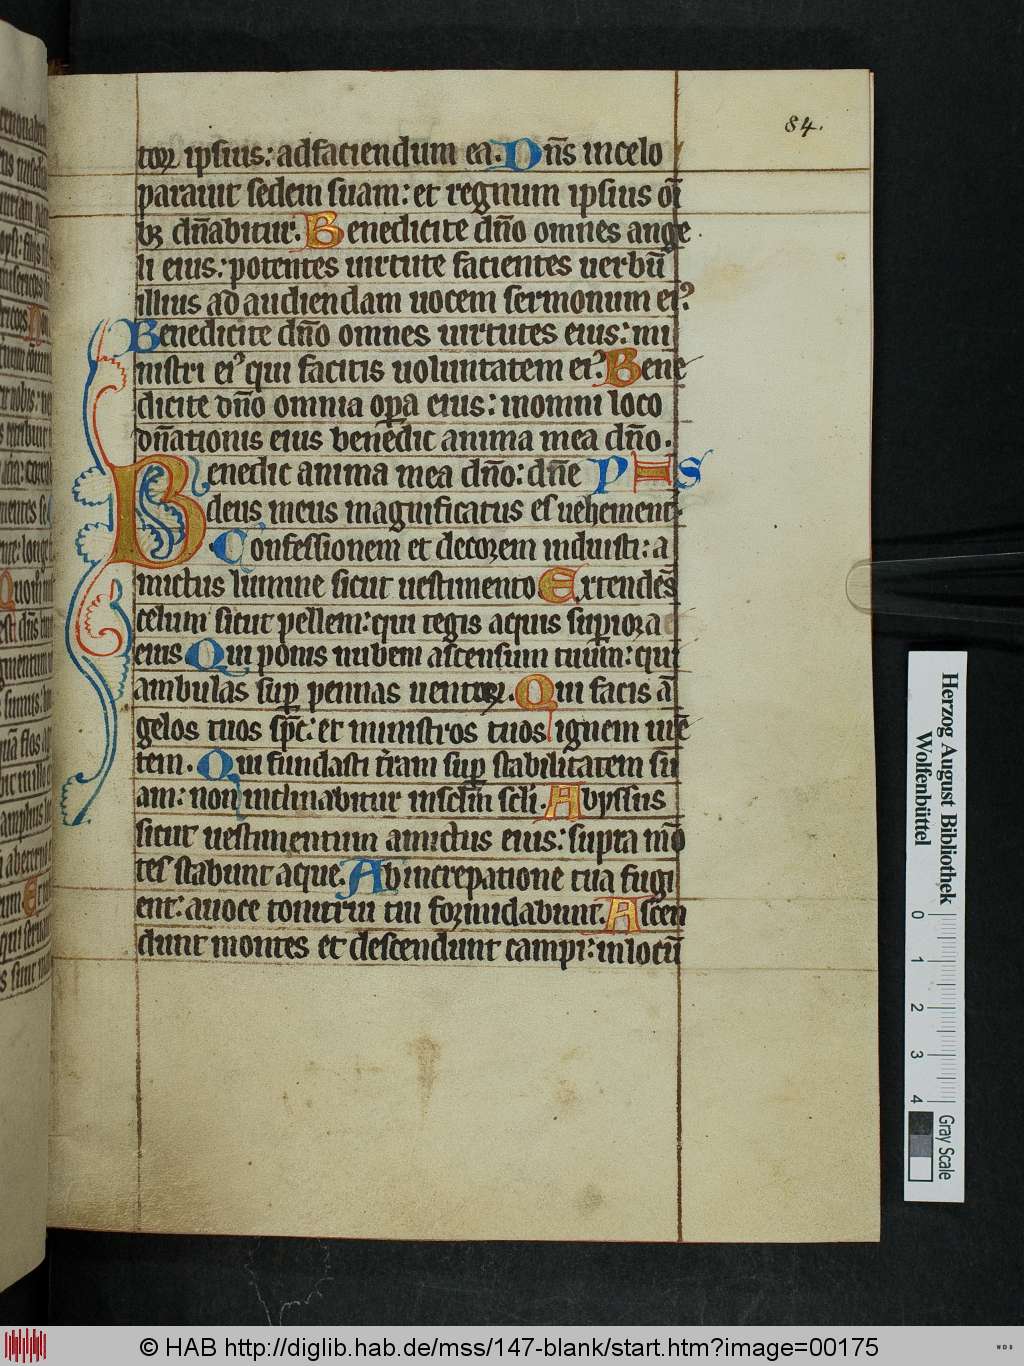 84.
toꝝ ipsius: ad faciendum ea. Dn̄s in celo
parauit sedem suam: et regnum ipsius oī
bꝫ dn̄abitur. Benedicite dn̄o omnes ange
li eius: potentes uirtute facientes uerbū
illius ad audiendam uocem sermonum ei᾿
Benedicite dn̄o omnes uirtutes eius: mi
nistri ei᾿ qui facitis uoluntatem ei᾿ Bene
dicite dn̄o omnia oꝑa eius: in omni loco
dn̄ationis eius benedic anima mea dn̄o.
Benedic anima mea dn̄o: dn̄e PAS
deus meus magnificatus es uehement᾿
Confessionem et decorem induisti: a
mictus lumine sicut uestimento Extendēs
celum sicut pellem: qui tegis aquis suꝑiora
eius Qui ponis nubem ascensum tuum: qui
ambulas suꝑ pennas uentoꝝ. Qui facis ā
gelos tuos spc̄: et ministros tuos ignem urē
tem. Qui fundasti t̄ram suꝑ stabilitatem su
am: non inclinabitur in sclm̄ scli. Abyssus
sicut uestimentum amictus eius: supra mō
tes stabunt aque. Ab increpatione tua fugi
ent: a uoce tonitrui tui formidabunt. Ascen
dunt montes et descendunt campi: in locū
Herzog August Bibliothek
Wolfenbüttel
0 1 2 3 4
Gray Scale
© HAB http://diglib.hab.de/mss/147-blank/start.htm?image=00175